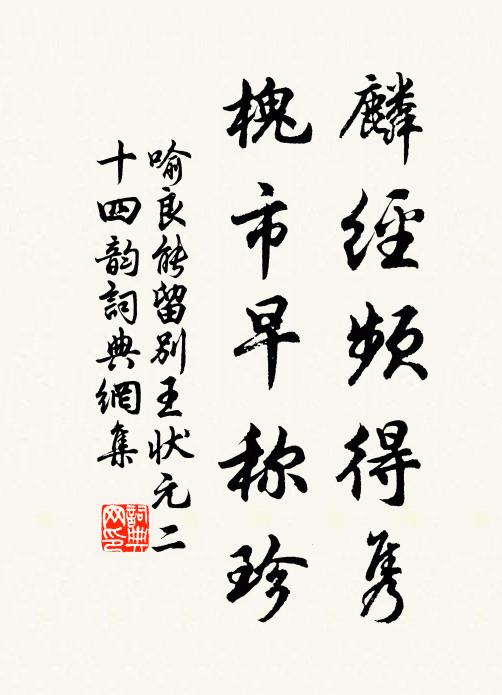 麟經频得隽
槐市早称珍
喻良能留别王状元二
十四韵詞典網集
詞典网印